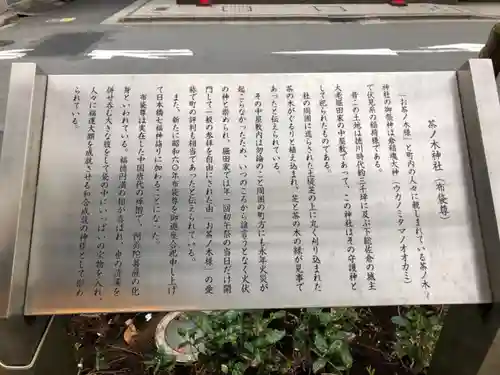 茶ノ木神社（布袋尊）
「お茶ノ木様」と町内の人々に親しまれている茶ノ木
神社の御祭神は倉稲魂大神（ウカノミタマノオオカミ）
で伏見系の稲荷様である。
昔この土地は徳川時代約三千坪に及ぶ下総佐倉の城主
大老堀田家の中屋敷であって、この神社はその守護神と
して祀られたものである。
社の周囲に巡らされた土堤芝の上に丸く刈り込まれた
茶の木がぐるりと植え込まれ、芝と茶の木の緑が見事で
あったと伝えられている。
その中屋敷内は勿論のこと周囲の町方にも永年火災が
起こらなかったため、いつのころから誰言うとなく火伏
の神と崇められ、堀田家では年一回初午祭の当日だけ開
門して一般の参拝を自由にされた由、「お茶ノ木様」の愛
称で町の評判も相当であったと伝えられている。
また、新たに昭和六〇年布袋尊を御遷座合祝申し上げ
て日本橋七福神詣りに加わることになった。
布袋尊は実在した中国唐代の禅僧で、阿弥陀菩薩の化
身といわれている。福徳円満の相が喜ばれ、世の清濁を
併せ呑む大きな袋の中にいっぱいの宝物を入れ、
人々に福運大願を成就させる和合成就の神様として崇め
られている。